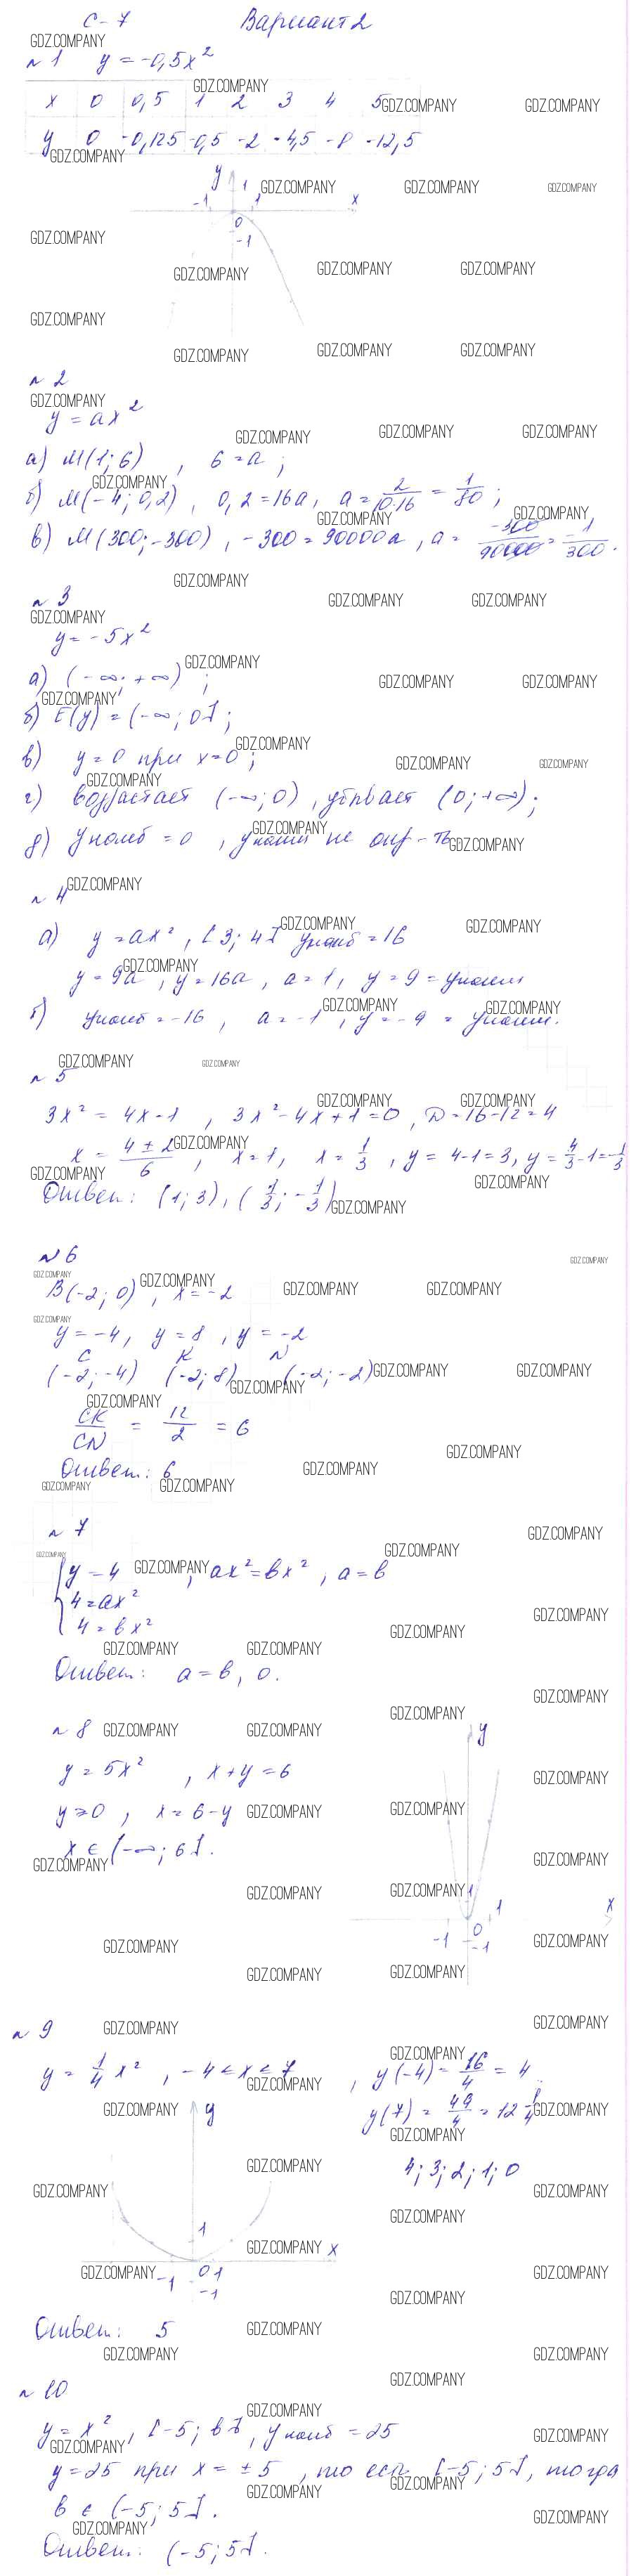 С-7 Вариант 2
№1 y = -0,5x²
x 0 0,5 1 2 3 4 5
y 0 -0,125 -0,5 -2 -4,5 -8 -12,5
y
1
-1 1 x
0
-1
№2
y = ax²
а) M(1; 6), 6 = a;
б) M(-4; 0,2), 0,2 = 16a, a = 2/10·16 = 1/80;
в) M(300; -300), -300 = 90000a, a = -300/90000 = -1/300.
№3
y = -5x²
а) (-∞; +∞);
б) E(y) = (-∞; 0];
в) y = 0 при x = 0;
г) возрастает (-∞; 0), убывает (0; +∞);
д) y наиб = 0, y наим не опр-ть
№4
а) y = ax², [3; 4] y наиб = 16
y = 9a, y = 16a, a = 1, y = 9 = y наим
б) y наиб = -16, a = -1, y = -9 = y наим.
№5
3x² = 4x-1, 3x²-4x+1=0, D = 16-12 = 4
x = 4±2/6, x = 1, x = 1/3, y = 4-1 = 3, y = 4/3-1 = -1/3
Ответ: (1; 3), (1/3; -1/3)
№6
B(-2; 0), x = -2
y = -4, y = 8, y = -2
C K N
(-2; -4) (-2; 8) (-2; -2)
CK/CN = 12/2 = 6
Ответ: 6
№7
y = 4, ax² = bx², a = b
4 = ax²
4 = bx²
Ответ: a = b, 0.
№8
y = 5x², x+y = 6
y ≥ 0, x = 6-y
x ∈ (-∞; 6].
y
1
1 x
-1 0
-1
№9
y = 1/4 x², -4 ≤ x ≤ 7, y(-4) = 16/4 = 4
y(7) = 49/4 = 12 1/4
4; 3; 2; 1; 0
y
1
x
-1 0 1
-1
Ответ: 5
№10
y = x², [-5; b], y наиб = 25
y = 25 при x = ±5, то есть [-5; 5], тогда
b ∈ (-5; 5].
Ответ: (-5; 5].
GDZ.COMPANY